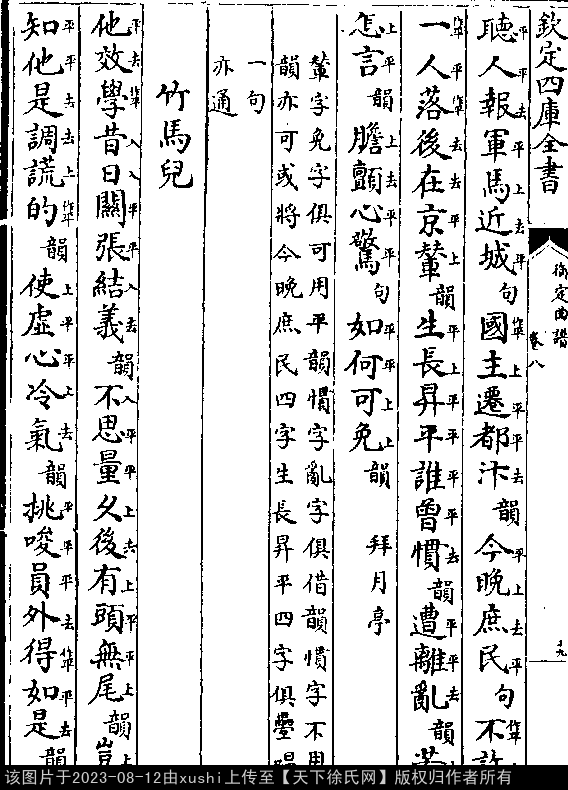 欽定四庫全書
御定曲譜
卷八
十九
聽人報軍馬近城句國主遷都汴韻今晚庶民句不許
一人落後在京輦韻生長昇平誰曾慣韻遭離亂韻苦
怎言韻膽顫心驚句如何可免韻 拜月亭
輦字免字俱可用平韻慣字亂字俱借韻慣字不用
韻亦可或將今晚庶民四字生長昇平四字俱疊唱
一句
亦通
竹馬兒
他效學昔日關張結義韻不思量久後有頭無尾韻豈
知他是調謊的韻使虛心冷氣韻挑唆員外得如是韻
该图片于2023-08-12由xushi上传至【天下徐氏网】版权归作者所有